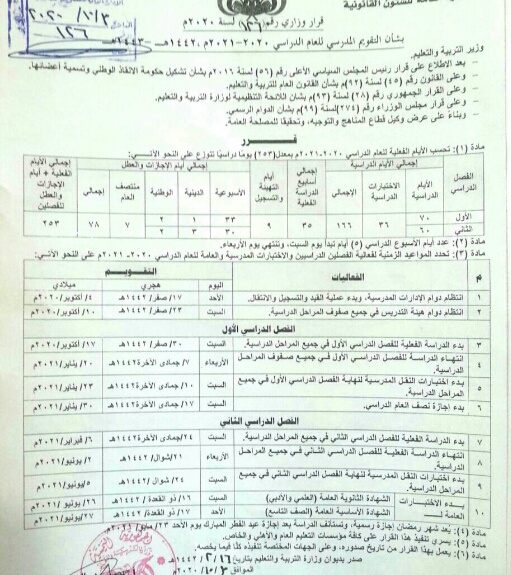 للشئون القانونية
٢٠٢٠/١٠/٣
١٢٦
قرار وزاري رقم (١٢٦) لسنة ٢٠٢٠م
بشأن التقويم المدرسي للعام الدراسي ٢٠٢٠-٢٠٢١م ١٤٤٢-١٤٤٣هـ
وزير التربية والتعليم.
– بعد الاطلاع على قرار رئيس المجلس السياسي الأعلى رقم (٥٦) لسنة ٢٠١٦م بشأن تشكيل حكومة الانقاذ الوطني وتسمية أعضائها.
– وعلى القانون رقم (٤٥) لسنة (٩٢)م بشأن القانون العام للتربية والتعليم.
– وعلى القرار الجمهوري رقم (٢٨) لسنة (٩٣)م بشأن اللائحة التنظيمية لوزارة التربية والتعليم.
– وعلى قرار مجلس الوزراء رقم (٢٧٤) لسنة (٩٩)م بشأن الدوام الرسمي.
– وبناءً على عرض وكيل قطاع المناهج والتوجيه، وتحقيقا للمصلحة العامة.
قـــرر
مادة (١): تحتسب الأيام الفعلية للعام الدراسي ٢٠٢٠-٢٠٢١م بمعدل (٢٥٣) يوما دراسيا تتوزع على النحو الآتي:
الفصل الدراسي | إجمالي الأيام الدراسية | إجمالي أسابيع الدراسية الفعلية | أيام التهيئة والتسجيل | إجمالي أيام الإجازات والعطل | إجمالي الأيام الفعلية + أيام الإجازات والعطل للفصلين
الأيام الدراسية | الاختبارات الدراسية | الإجمالي | الأسبوعية | الدينية | الوطنية | منتصف العام | إجمالي
الأول | ٧٠ | ٣٦ | ١٦٦ | ٣٥ | ٩ | ٣٣ | ١ | ٢ | ٧ | ٧٨ | ٢٥٣
الثاني | ٦٠ | ٣٠ | ٣ | ٢
مادة (٢): عدد أيام الأسبوع الدراسي (٥) أيام تبدأ يوم السبت، وتنتهي يوم الأربعاء.
مادة (٣): تحدد المواعيد الزمنية لفعالية الفصلين الدراسيين والاختبارات المدرسية والعامة للعام الدراسي ٢٠٢٠-٢٠٢١م على النحو الآتي:
م | الفعاليات | التقويم
اليوم | هجري | ميلادي
١ | انتظام دوام الإدارات المدرسية، وبدء عملية القيد والتسجيل والانتقال. | الأحد | ١٧/ صفر/ ١٤٤٢هـ | ٤/ أكتوبر/٢٠٢٠م
٢ | انتظام دوام هيئة التدريس في جميع صفوف المراحل الدراسية. | السبت | ٢٣/ صفر/ ١٤٤٢هـ | ١٠/ أكتوبر/٢٠٢٠م
الفصل الدراسي الأول
٣ | بدء الدراسة الفعلية للفصل الدراسي الأول في جميع المراحل الدراسية. | السبت | ٣٠/ صفر/ ١٤٤٢هـ | ١٧/ أكتوبر/٢٠٢٠م
٤ | انتهاء الدراسة للفصل الدراسي الأول في جميع صفوف المراحل الدراسية. | الأربعاء | ٧/ جمادى الآخرة/١٤٤٢هـ | ٢٠/ يناير/٢٠٢١م
٥ | بدء اختبارات النقل المدرسية لنهاية الفصل الدراسي الأول في جميع المراحل الدراسية. | السبت | ١٠/ جمادى الآخرة/١٤٤٢هـ | ٢٣/ يناير/٢٠٢١م
٦ | بدء إجازة نصف العام الدراسي. | السبت | ١٧/ جمادى الآخرة/١٤٤٢هـ | ٣٠/ يناير/٢٠٢١م
الفصل الدراسي الثاني
٧ | بدء الدراسة الفعلية للفصل الدراسي الثاني في جميع المراحل الدراسية. | السبت | ٢٤/جمادى الآخرة/١٤٤٢هـ | ٦/ فبراير/٢٠٢١م
٨ | انتهاء الدراسة الفعلية للفصل الدراسي الثاني في جميع المراحل الدراسية. | الأربعاء | ٢١/شوال/ ١٤٤٢هـ | ٢/ يونيو/٢٠٢١م
٩ | بدء اختبارات النقل المدرسية لنهاية الفصل الدراسي الثاني في جميع المراحل الدراسية. | السبت | ٢٤/شوال/ ١٤٤٢هـ | ٥/يونيو/ ٢٠٢١م
١٠ | بدء الاختبارات العامة | الشهادة الثانوية العامة (العلمي والأدبي) | السبت | ١٦/ ذو القعدة/ ١٤٤٢هـ | ٢٦/ يونيو/ ٢٠٢١م
الشهادة الأساسية العامة (الصف التاسع) | الأحد | ١٧/ ذو القعدة/ ١٤٤٢هـ | ٢٧/ يونيو/ ٢٠٢١م
مادة (٤): يعد شهر رمضان إجازة رسمية، وتستأنف الدراسة بعد إجازة عيد الفطر المبارك يوم الأحد ٢٣/مايو/٢٠٢١م.
مادة (٥): يسري تنفيذ هذا القرار على كافة مؤسسات التعليم العام والأهلي والخاص.
مادة (٦): يعمل بهذا القرار من تاريخ صدوره، وعلى الجهات المختصة تنفيذه كلا فيما يخصه.
صدر بديوان وزارة التربية والتعليم بتاريخ ٢/١٦/ ١٤٤٢هـ
الموافق ١٠/٣/ ٢٠٢٠م